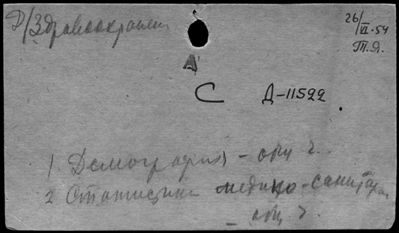 Р/Здравоохранен
26/VI-54
Т.Я.
А
С Д-11522
1 Демография - общ ч.
2 Статистика медико-санитар
- общ ч.